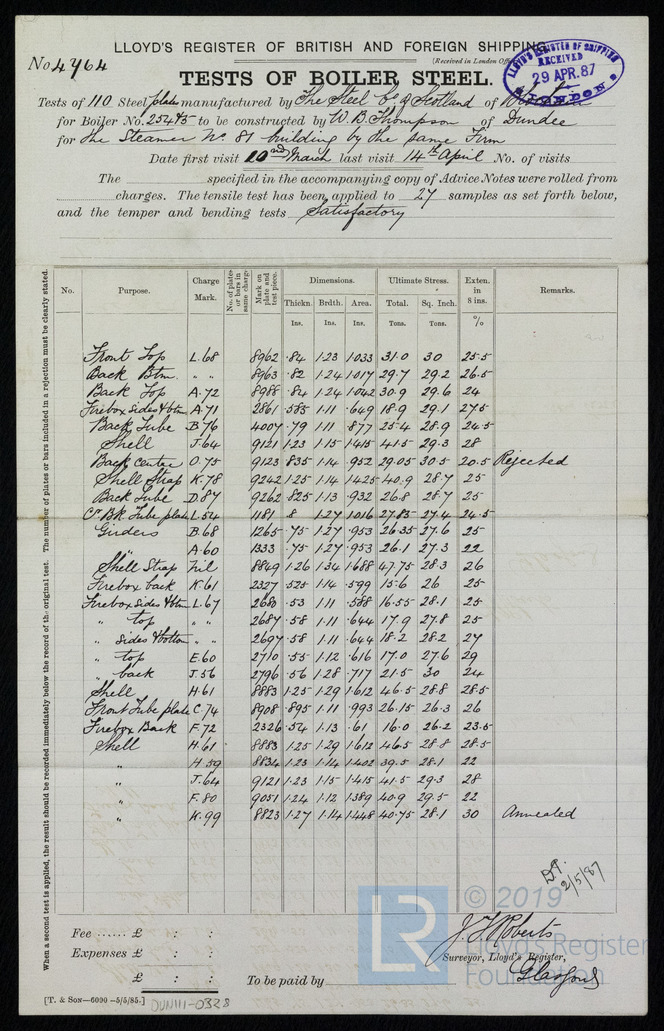 LLOYD'S REGISTER OF BRITISH AND FOREIGN SHIPPING
No 4764
[Received in London
LLOYD'S REGISTER OF SHIPPING
RECEIVED
29 APR. 87
LONDON
TESTS OF BOILER STEEL.
Tests of 110 Steel plates manufactured by The Steel Co of Scotland of
for Boiler No. to be constructed by W. B. Thompson of Dundee
for the Steamer No. 81 building by the same Firm
Date first visit March last visit 14th April No. of visits
The specified in the accompanying copy of Advice Notes were rolled from
charges. The tensile test has been applied to 27 samples as set forth below,
and the temper and bending tests Satisfactory
No. Purpose. Charge Mark. No. of plates or bars in same charge Mark on plate and test piece. Dimensions. Ultimate Stress. Exten. in 8 ins. Remarks.
Thickn. Brdth. Area. Total. Sq. Inch.
Ins. Ins. Ins. Tons. Tons. %
Front Top L.68 8962 .84 1.23 1.033 31.0 30 25.5
Back Btm " " 8963 .82 1.24 1.017 29.7 29.2 26.5
Back Top A.72 8988 .84 1.24 1.042 30.9 29.6 24
Firebox sides & btm A.71 2861 .585 1.11 .649 18.9 29.1 27.5
Back Tube B.76 4007 .79 1.11 .877 25.4 28.9 24.5
Shell J.64 9121 1.23 1.15 1.415 41.5 29.3 28
Back center O.75 9123 .835 1.14 .952 29.05 30.5 20.5 Rejected
Shell Strap K.78 9242 1.25 1.14 1.425 40.9 28.7 25
Back Tube D.87 9262 .825 1.13 .932 26.8 28.7 25
Cr Bk Tube plate L.54 1181 .8 1.27 1.016 27.85 27.4 24.5
Girders B.68 1265 .75 1.27 .953 26.35 27.6 25
" A.60 1333 .75 1.27 .953 26.1 27.3 22
Shell Strap Nil 8849 1.26 1.34 1.688 47.75 28.3 26
Firebox back K.61 2327 .525 1.14 .599 15.6 26 25
Firebox sides & btm L.67 2680 .53 1.11 .588 16.55 28.1 25
" top " " 2687 .58 1.11 .644 17.9 27.8 25
" sides & bottom " " 2697 .58 1.11 .644 18.2 28.2 27
" top E.60 2710 .55 1.12 .616 17.0 27.6 29
" back J.56 2796 .56 1.28 .717 21.5 30 24
Shell H.61 8883 1.25 1.29 1.612 46.5 28.8 28.5
Front Tube plate C.74 8908 .895 1.11 .993 26.15 26.3 26
Firebox Back F.72 2326 .54 1.13 .61 16.0 26.2 23.5
Shell H.61 8883 1.25 1.29 1.612 46.5 28.8 28.5
" H.59 8834 1.23 1.14 1.402 39.5 28.1 22
" J.64 9121 1.23 1.15 1.415 41.5 29.3 28
" F.80 9051 1.24 1.12 1.389 40.9 29.5 22
" K.99 8823 1.27 1.14 1.448 40.75 28.1 30 Annealed
2/5/87
When a second test is applied, the result should be recorded immediately below the record of the original test. The number of plates or bars included in a rejection must be clearly stated.
LR © 2019
Lloyd's Register
Foundation
Fee ...... £ : :
Expenses £ : :
£ : :
To be paid by
Surveyor, Lloyd's Register,
Glasgow
[T. & SON—6000—5/5/85.]
DUN111-0328